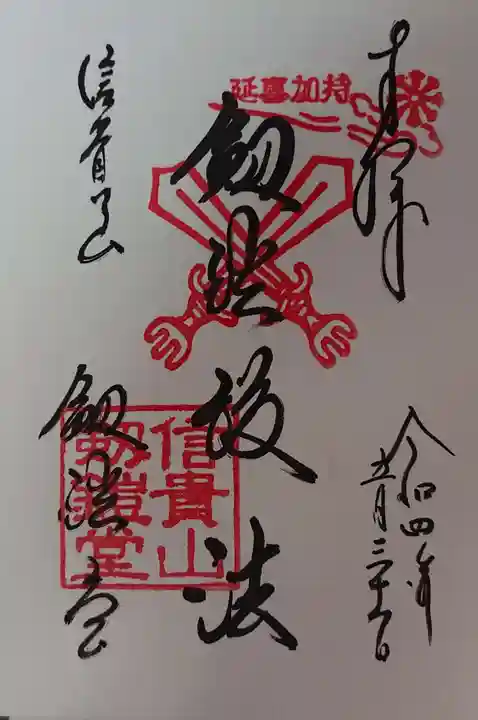 奉拝
令和四年
五月
延喜加持
剱鎧護法
信貴山
剱鎧堂
信貴山
剱鎧堂